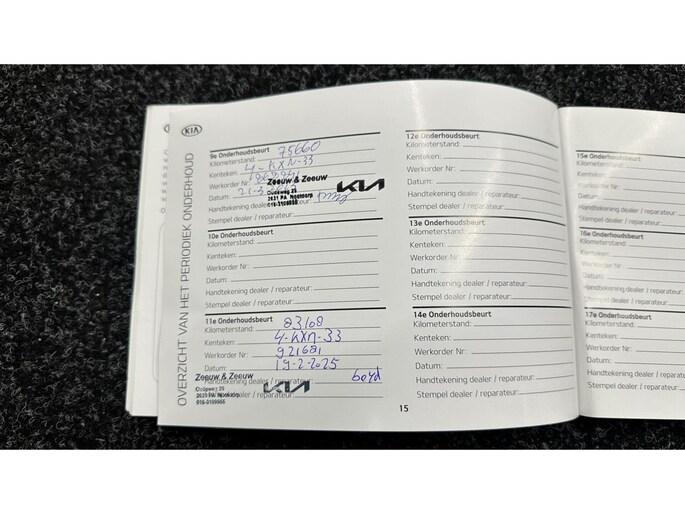 KIA
OVERZICHT VAN HET PERIODIEK ONDERHOUD
9e Onderhoudsbeurt
Kilometerstand: 75660
Kenteken: 4-KXN-33
Werkorder Nr:
Datum:
Zeeuw & Zeeuw
Oudeweg 25
2631 PA Nootdorp
015-3109955
KIA
Handtekening dealer / reparateur:
Stempel dealer / reparateur:
10e Onderhoudsbeurt
Kilometerstand:
Kenteken:
Werkorder Nr:
Datum:
Handtekening dealer / reparateur:
Stempel dealer / reparateur:
11e Onderhoudsbeurt
Kilometerstand: 83168
Kenteken: 4-KXN-33
Werkorder Nr: 921681
Datum: 19-2-2025
Zeeuw & Zeeuw
Handtekening dealer / reparateur: boyd
KIA
Stempel dealer / reparateur:
12e Onderhoudsbeurt
Kilometerstand:
Kenteken:
Werkorder Nr:
Datum:
Handtekening dealer / reparateur:
Stempel dealer / reparateur:
13e Onderhoudsbeurt
Kilometerstand:
Kenteken:
Werkorder Nr:
Datum:
Handtekening dealer / reparateur:
Stempel dealer / reparateur:
14e Onderhoudsbeurt
Kilometerstand:
Kenteken:
Werkorder Nr:
Datum:
Handtekening dealer / reparateur:
Stempel dealer / reparateur:
15
15e Onderhoudsbeurt
Kilometerstand:
Kenteken:
Werkorder Nr:
Datum:
Handtekening dealer
Stempel dealer / re
16e Onderhoudsbeurt
Kilometerstand:
Kenteken:
Werkorder Nr:
Datum:
Handtekening dealer
Stempel dealer / rep
17e Onderhoudsbeurt
Kilometerstand:
Kenteken:
Werkorder Nr:
Datum:
Handtekening dealer /
Stempel dealer / repar